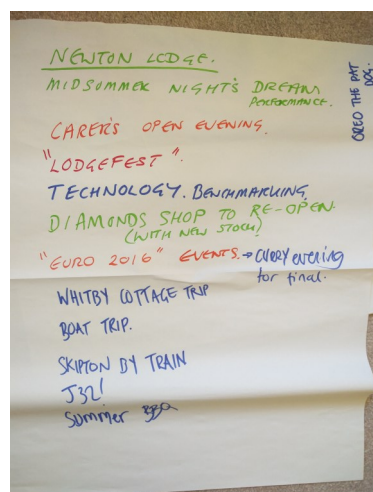 NEWTON LODGE.
MIDSOMMER NIGHT'S DREAM
PERFORMANCE.
OREO THE PAT
DOG.
CARER'S OPEN EVENING.
"LODGEFEST".
TECHNOLOGY. BENCHMARKING
DIAMONDS SHOP TO RE-OPEN.
(WITH NEW STOCK)
"EURO 2016" EVENTS. → CURRY evening
for final.
WHITBY COTTAGE TRIP
BOAT TRIP.
SKIPTON BY TRAIN
J32!
Summer BBQ